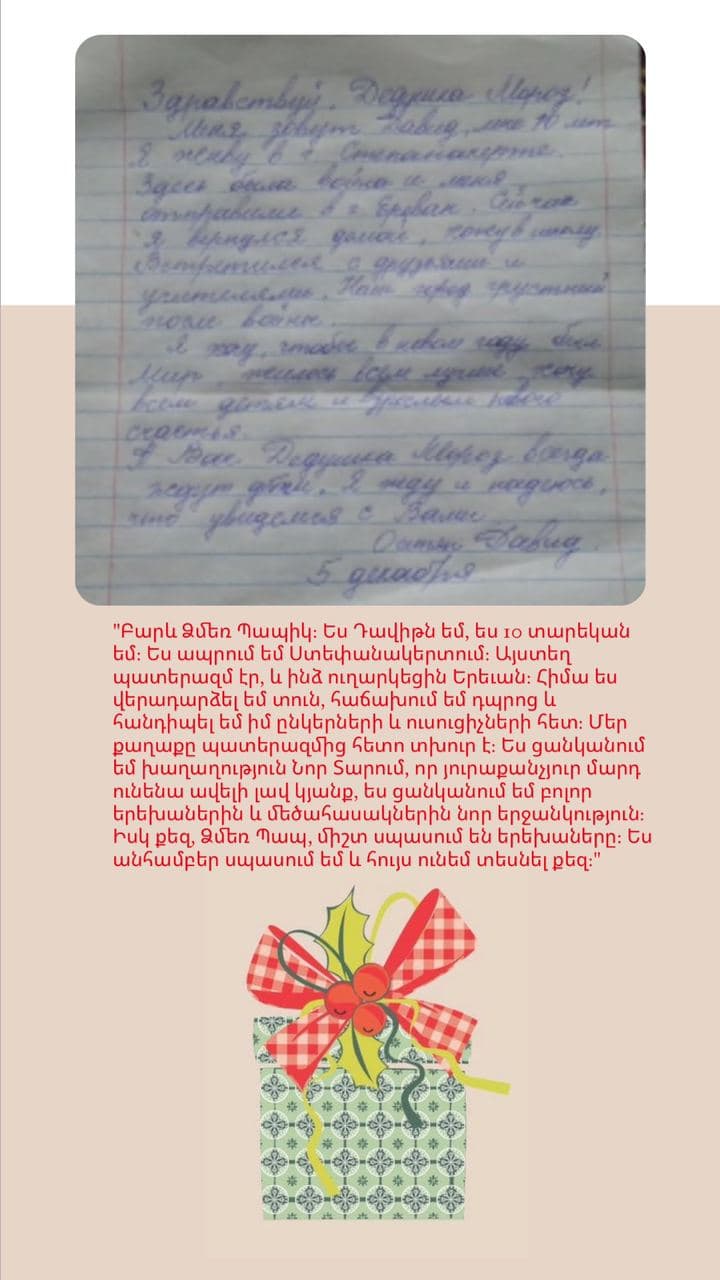 Здравствуй, Дедушка Мороз!
Меня зовут Давид, мне 10 лет
Я живу в г. Степанакерте.
Здесь была война и меня
отправили в г. Ереван. Сейчас
я вернулся домой, хожу в школу.
Встретился с друзьями и
учителями. Наш город грустный
после войны.
Я хочу, чтобы в новом году был
Мир, жилось всем лучше, хочу
всем детям и взрослым нового
счастья.
А Вас Дедушка Мороз всегда
ждут дети. Я жду и надеюсь,
что увидимся с Вами
Давид.
5 декабря
"Բարև Ձմեռ Պապիկ: Ես Դավիթն եմ, ես 10 տարեկան
եմ: Ես ապրում եմ Ստեփանակերտում: Այստեղ
պատերազմ էր, և ինձ ուղարկեցին Երեւան: Հիմա ես
վերադարձել եմ տուն, հաճախում եմ դպրոց և
հանդիպել եմ իմ ընկերների և ուսուցիչների հետ: Մեր
քաղաքը պատերազմից հետո տխուր է: Ես ցանկանում
եմ խաղաղություն Նոր Տարում, որ յուրաքանչյուր մարդ
ունենա ավելի լավ կյանք, ես ցանկանում եմ բոլոր
երեխաներին և մեծահասակներին նոր երջանկություն:
Իսկ քեզ, Ձմեռ Պապ, միշտ սպասում են երեխաները: Ես
անհամբեր սպասում եմ և հույս ունեմ տեսնել քեզ:"